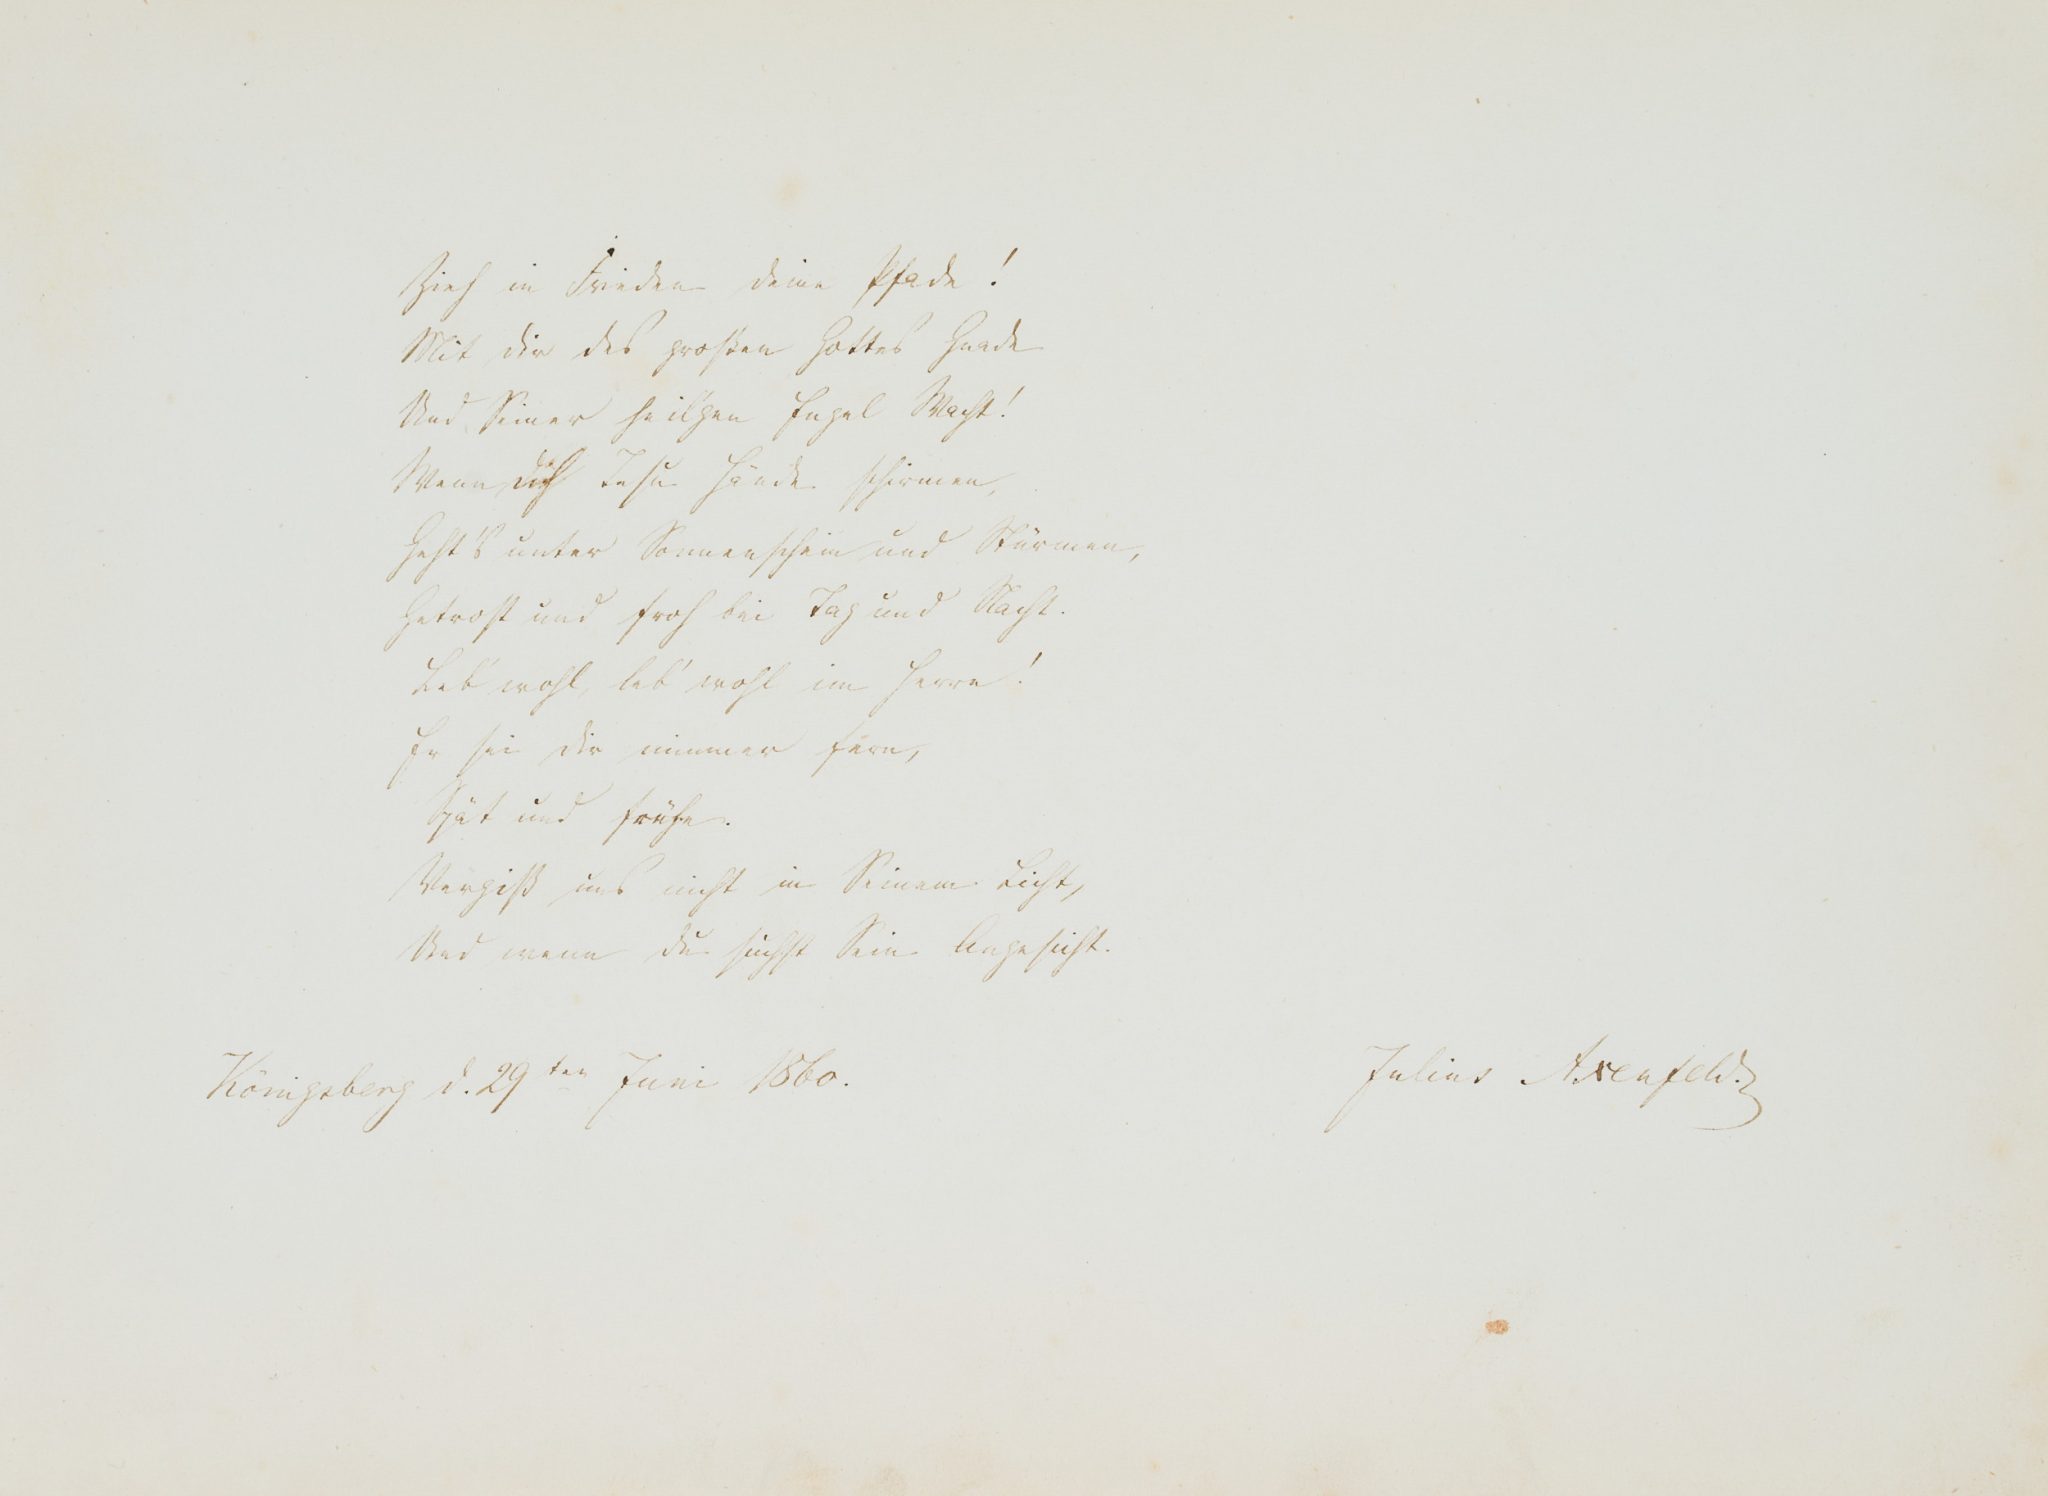 Zieh in Frieden deine Pfade!
Mit dir des großen Gottes Gnade
Und Seiner heil'gen Engel Wacht!
Wenn dich Jesu Hände schirmen,
Geht's unter Sonnenschein und Stürmen,
Getrost und froh bei Tag und Nacht.
Leb' wohl, leb' wohl im Herrn!
Er sei dir nimmer fern,
Spät und frühe.
Vergiß uns nicht in Seinem Licht,
Und wenn du suchst Sein Angesicht.
Königsberg d. 29ten Juni 1860.
Julius Axenfeld.